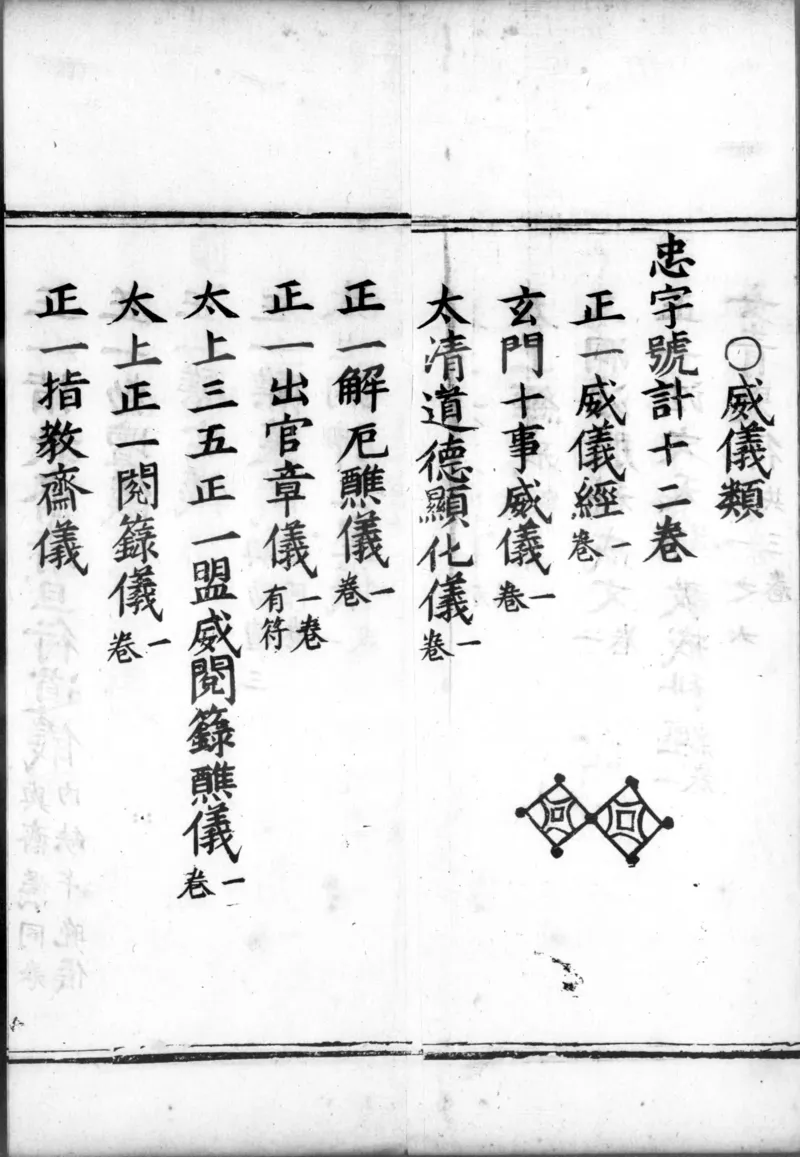 〇威儀類
忠字號計十二卷
正一威儀經一卷
玄門十事威儀一卷
太清道德顯化儀一卷
正一解厄醮儀一卷
正一出官章儀一卷有符
太上三五正一盟威閱籙醮儀一卷
太上正一閱籙儀一卷
正一指教齋儀